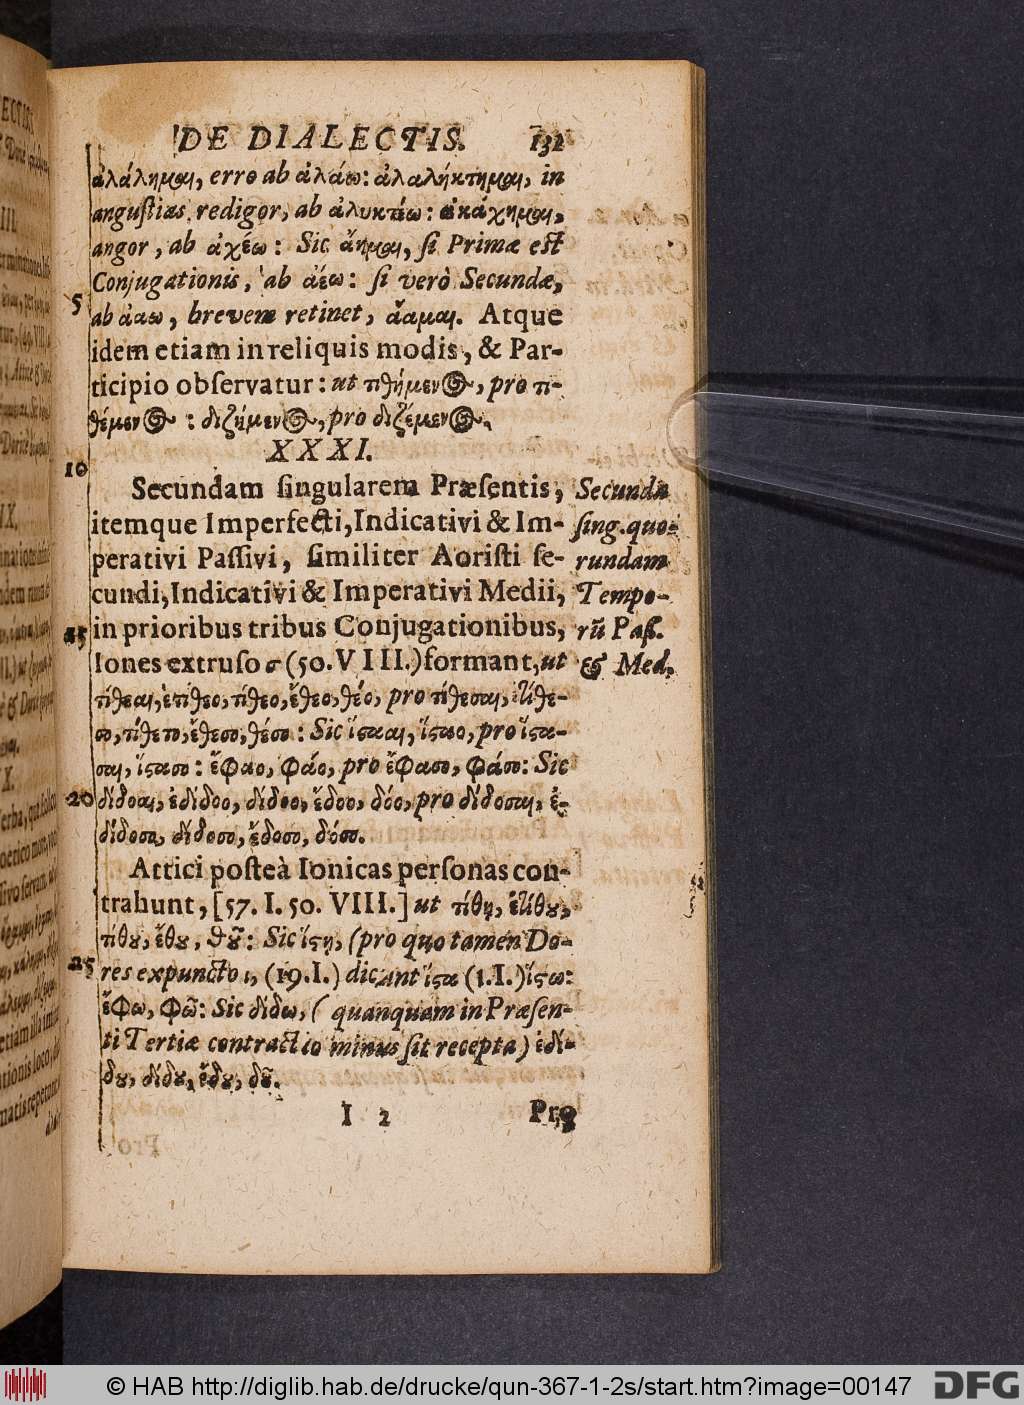 DE DIALECTIS. 131
ἀλάλημαι, erro ab ἀλάω: ἀλαλήκτημαι, in
angustias redigor, ab ἀλυκτέω: ἀκάχημαι,
angor, ab ἀχέω: Sic ἄημαι, si Primæ est
Conjugationis, ab ἀέω: si verò Secundæ,
5
ab ἀαω, brevem retinet, ἄαμαι. Atque
idem etiam in reliquis modis, & Par-
ticipio observatur: ut τιθήμενος, pro τι-
θέμενος: διζήμενος, pro διζέμενος.
XXXI.
10
Secundam singularem Præsentis,
itemque Imperfecti, Indicativi & Im-
perativi Passivi, similiter Aoristi se-
cundi, Indicativi & Imperativi Medii,
15
in prioribus tribus Conjugationibus,
Iones extruso σ (50. VIII.) formant, ut
τίθεαι, ἐτίθεο, τίθεο, ἔθεο, θέο, pro τίθεσαι, ἐτίθε-
σο, τίθεσο, ἔθεσο, θέσο: Sic ἵστααι, ἵσταο, pro ἵστα-
σαι, ἵστασο: ἔφαο, φάο, pro ἔφασο, φάσο: Sic
20
δίδοαι, ἐδίδοο, δίδοο, ἔδοο, δόο, pro δίδοσαι, ἐ-
δίδοσο, δίδοσο, ἔδοσο, δόσο.
Attici posteà Ionicas personas con-
trahunt, [57. I. 50. VIII.] ut τίθῃ, ἐτίθου,
τίθου, ἔθου, θοῦ: Sic ἵστῃ, (pro quo tamen Do-
25
res expuncto ι, (19. I.) dicunt ἵστα (1. I.) ἵστω:
ἔφω, φῶ: Sic δίδω, (quanquam in Præsen-
ti Tertiæ contractio minus sit recepta) ἐδί-
δου, δίδου, ἔδου, δοῦ.
I 2 Pro
Secunda
sing. quo-
rundam
Tempo-
rũ Pass.
& Med.
© HAB http://diglib.hab.de/drucke/qun-367-1-2s/start.htm?image=00147 DFG